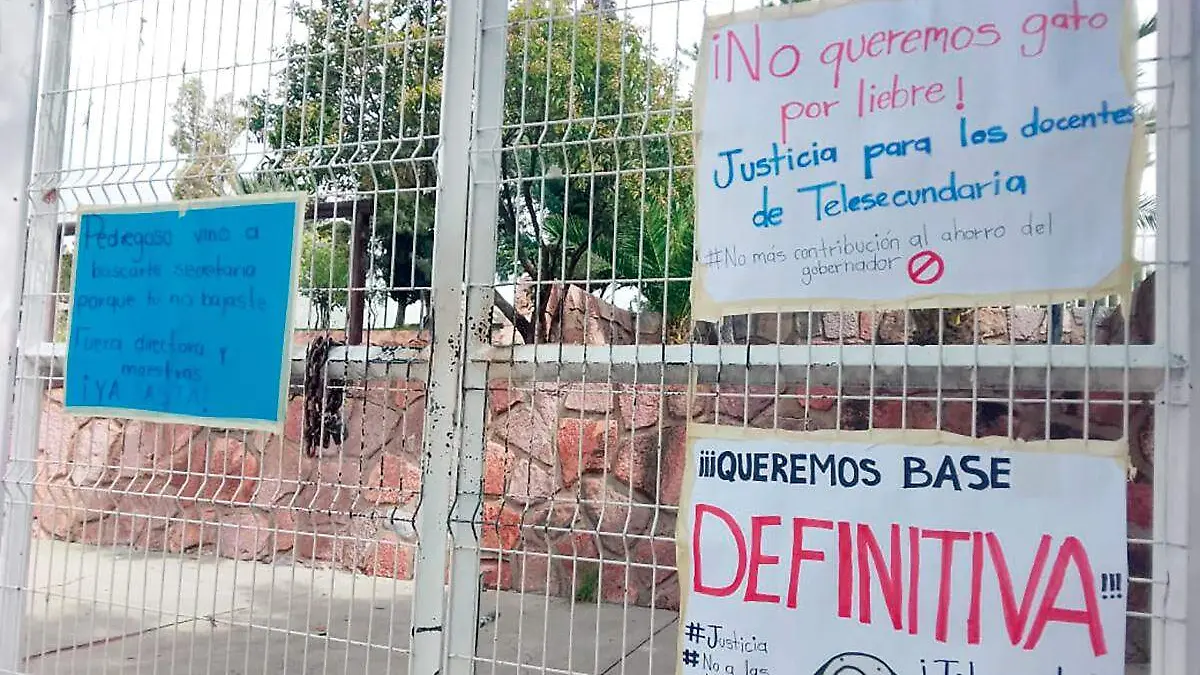 Pedregoso vino a
buscarte secretaria
porque tu no bajaste
Fuera directora y
maestras
¡YA BASTA!
¡No queremos gato
por liebre!
Justicia para los docentes
de Telesecundaria
#No más contribución al ahorro del
gobernador
¡¡¡QUEREMOS BASE
DEFINITIVA!!!
#Justicia
#No a las